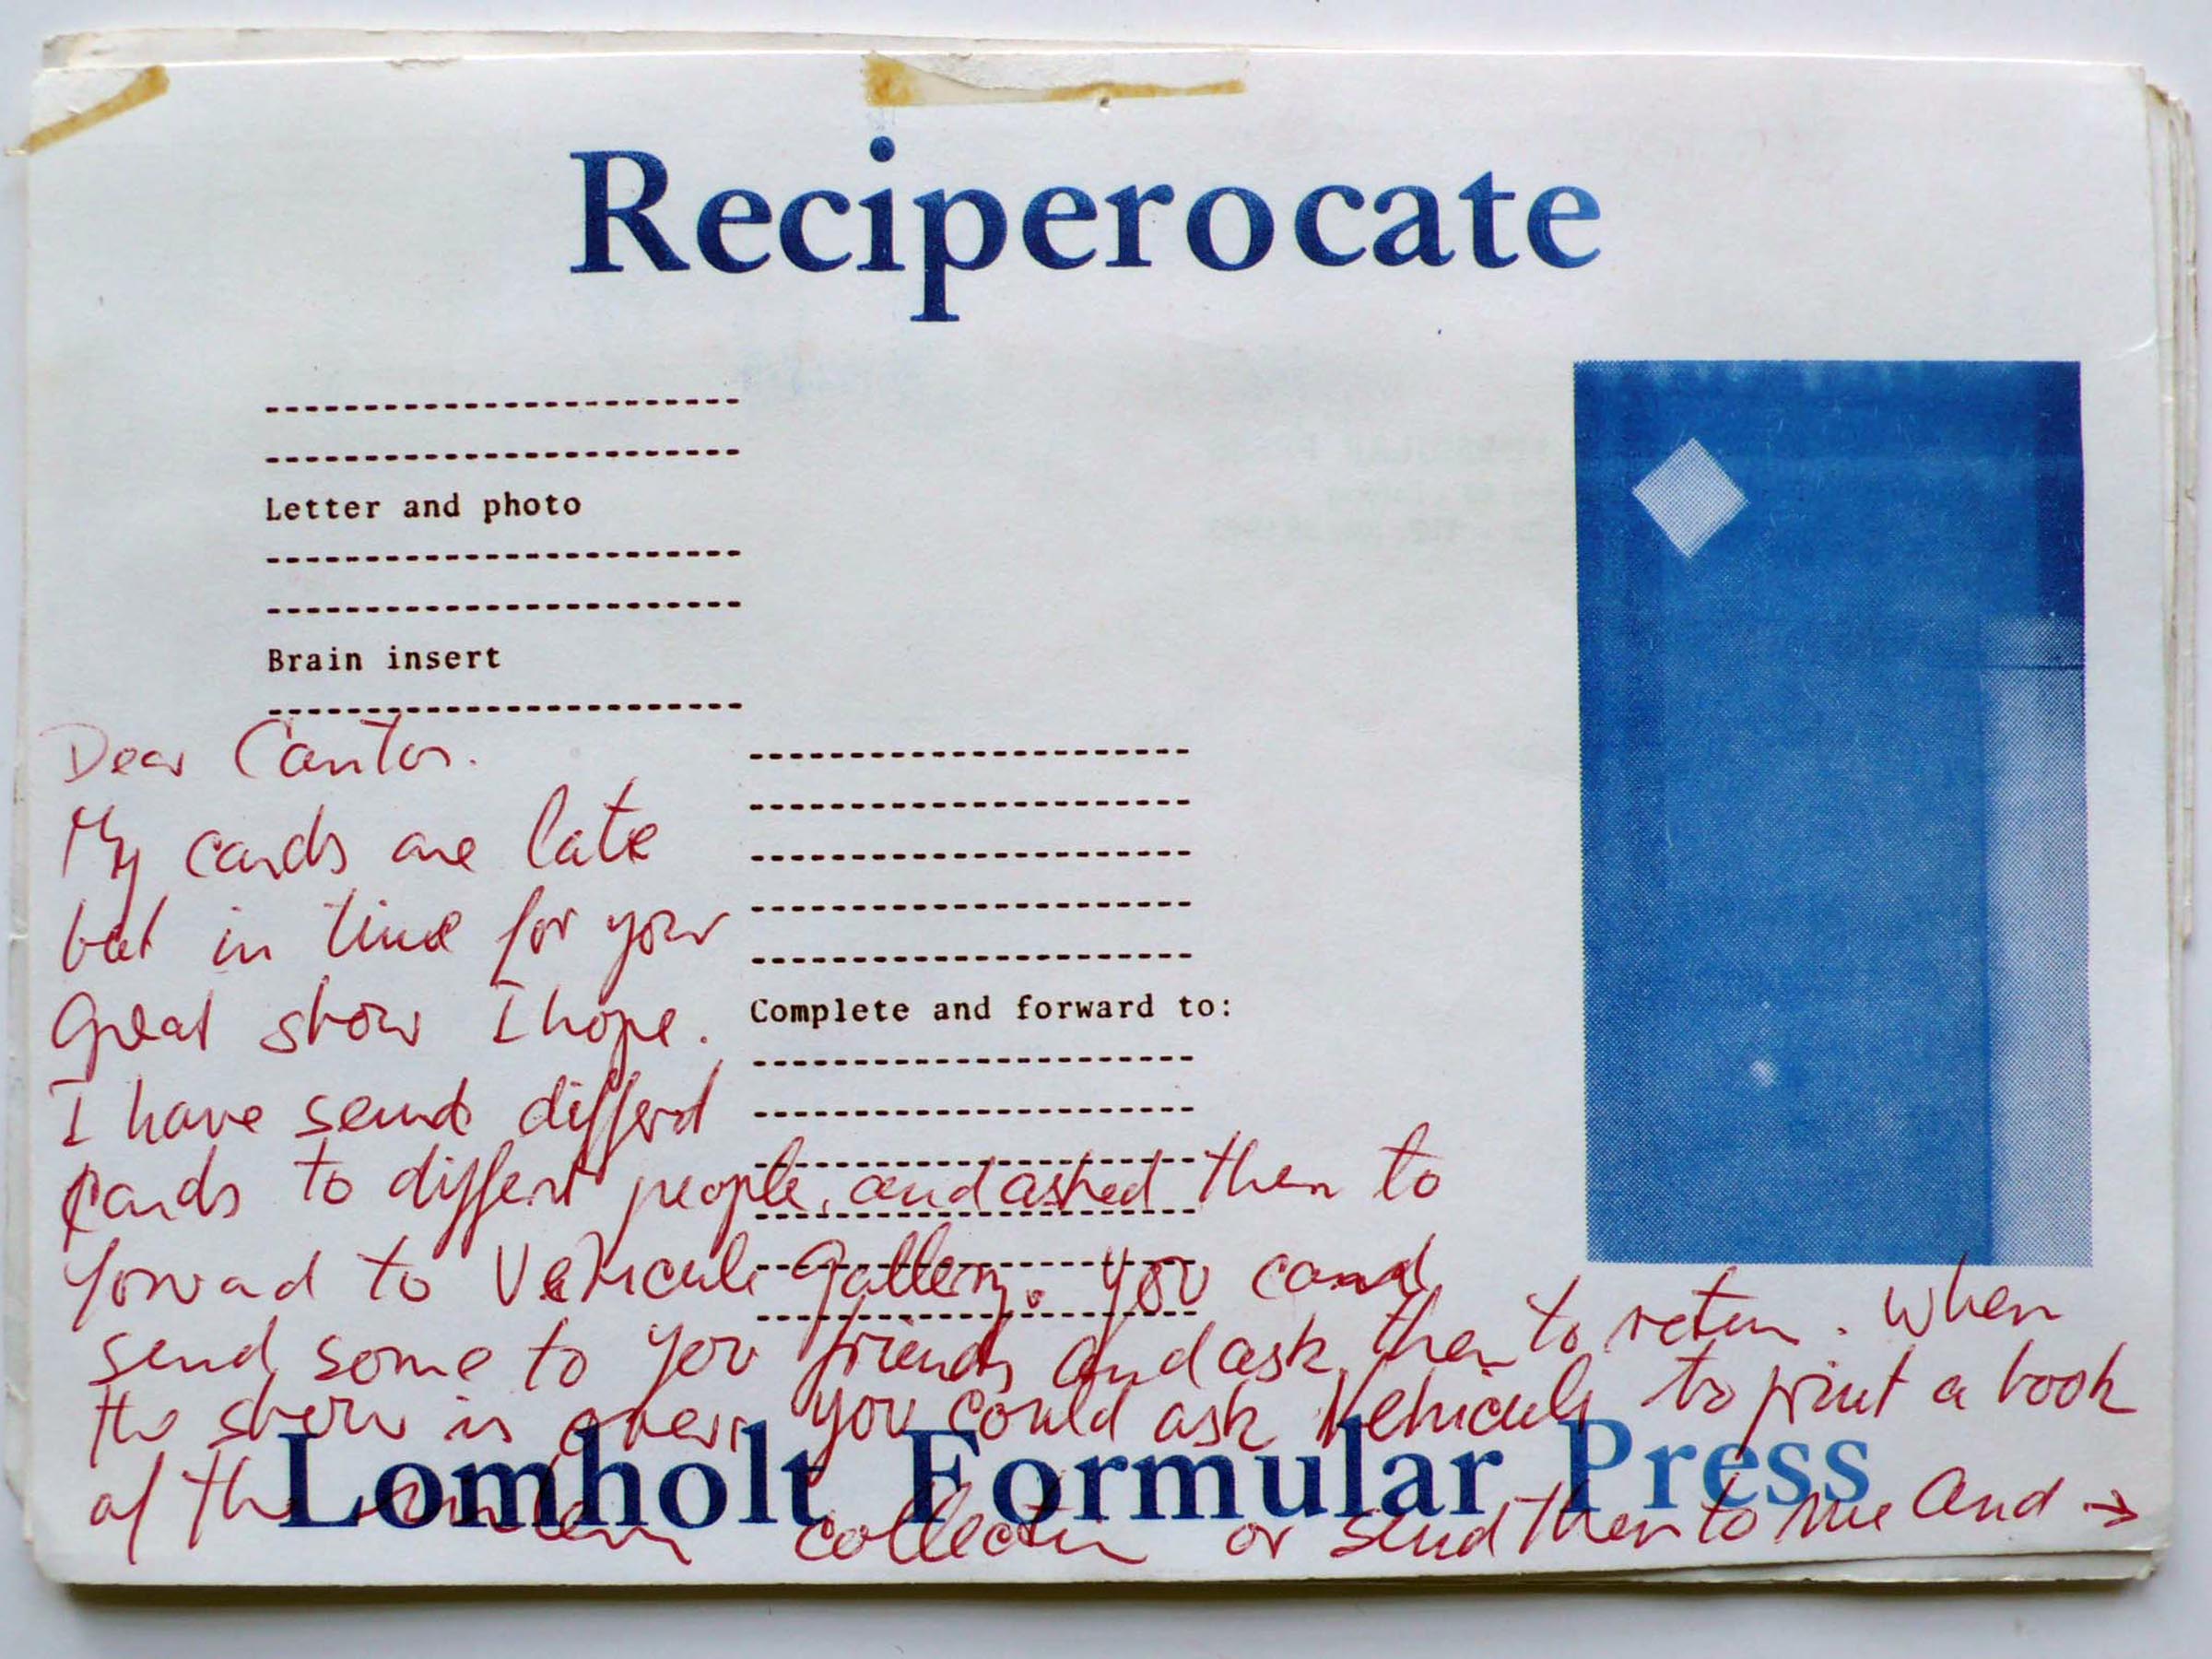 Reciperocate
Letter and photo
Brain insert
Dear Cantor.
My cards are late
but in time for your
great show I hope.
I have send differd
cards to differt people, and asked them to
forward to Vehicule Gallery. You cand
send some to you friends and ask them to return. When
the show is over, you could ask Vehicule to print a book
of the collection or send them to me and →
Complete and forward to:
Lomholt Formular Press